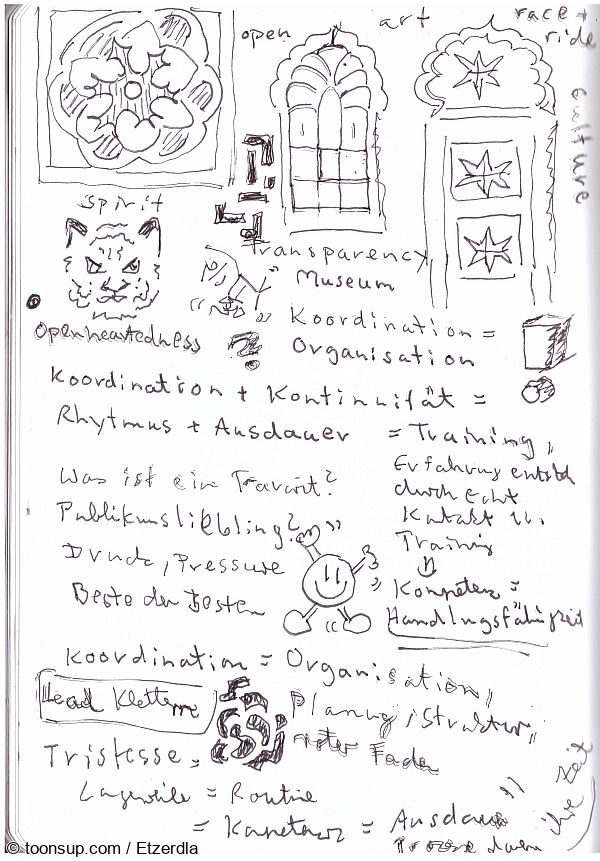 open
art
race +
ride
culture
Spirit
Transparency
Museum
Openheartedness
?
Koordination =
Organisation
Koordination + Kontinuität =
Rhytmus + Ausdauer
= Training,
Erfahrung
durch echt
Training
Was ist ein Favorit?
Publikumsliebling?
Druck, Pressure
Beste der Besten
Kompetenz =
Handlungsfähigkeit
Koordination = Organisation,
Lead Klettern
Planung, Struktur,
roter Faden
Tristesse =
Langeweile = Routine
= Kompetenz = Ausdauer
ihre Zeit
© toonsup.com / Etzerdla